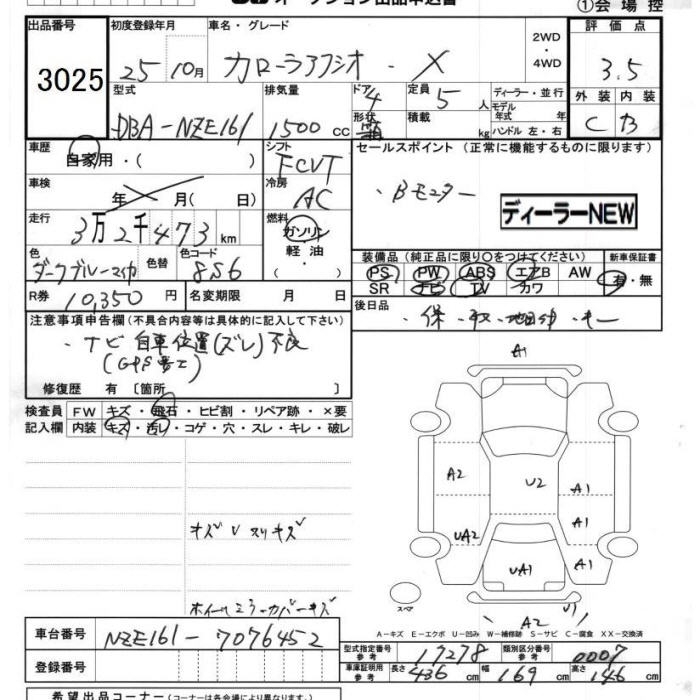 オークション出品申込書
①会場控
出品番号 初度登録年月 車名・グレード 2WD ・ 4WD 評価点
3025 25 10月 カローラアクシオ ・ X 3.5
型式 排気量 ドア 4 定員 5人 ディーラー・並行 外装 内装
DBA-NZE161 1500cc 形状 箱 積載 kg モデル年式 年 ハンドル 左・右 C B
車歴 シフト セールスポイント (正常に機能するものに限ります)
自家用・( ) FCVT
車検 冷房 ・Bモニター
年 月( 日) AC ディーラーNEW
走行 燃料
3万2千473km ガソリン
軽油
色 色替 色コード ・( ) 装備品(純正品に限り○をつけてください) 新車保証書
ダークブルーマイカ 856 PS PW ABS エアB AW 有・無
SR ナビ TV カワ
R券 10,350円 名変期限 月 日 後日品
・保・取・地図・キー
注意事項申告欄(不具合内容等は具体的に記入して下さい)
・ナビ 自車位置(ズレ)不良
(GPS
修復歴 有 〔箇所 〕
A1
検査員 FW キズ・飛石・ヒビ割・リペア跡・×要
記入欄 内装 キズ・汚レ・コゲ・穴・スレ・キレ・破レ
A2 U2 A1
A1
キズUスリキズ
UA2 UA1 A1
ホイールミラーカバーキズ
スペア
A2 U1
車台番号 NZE161-7076452
A−キズ E−エクボ U−凹み W−補修跡 S−サビ C−腐食 XX−交換済
型式指定番号参考 17278 類別区分番号参考 0007
登録番号 車庫証明用参考 長さ 436cm 幅 169cm 高さ 146cm
希望出品コーナー(コーナーは各会場により異なります)